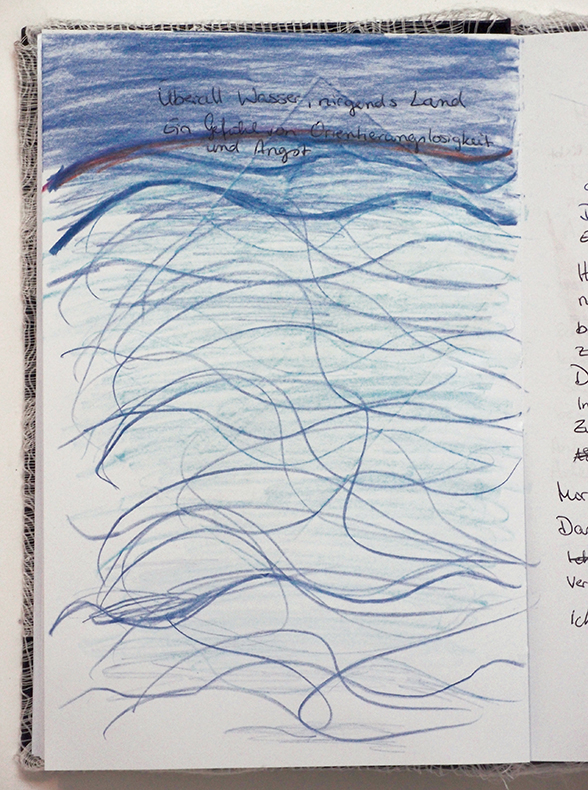 Überall Wasser, nirgends Land
Ein Gefühl von Orientierungslosigkeit
und Angst
J
E
H
n
b
z
D
In
Zu
Mor
Dar
ver
Ich